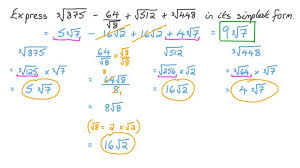 Express ³√875 - 64/√8 + √512 + ³√448 in its simplest form.
= 5³√7 - 16√2 + 16√2 + 4³√7 = 9³√7
³√875
= ³√125 × ³√7
= 5³√7
64/√8 × √8/√8
= 64√8/8
= 8√8
(√8 = 2 × √2)
= 16√2
√512
= √256 × √2
= 16√2
³√448
= ³√64 × ³√7
= 4³√7